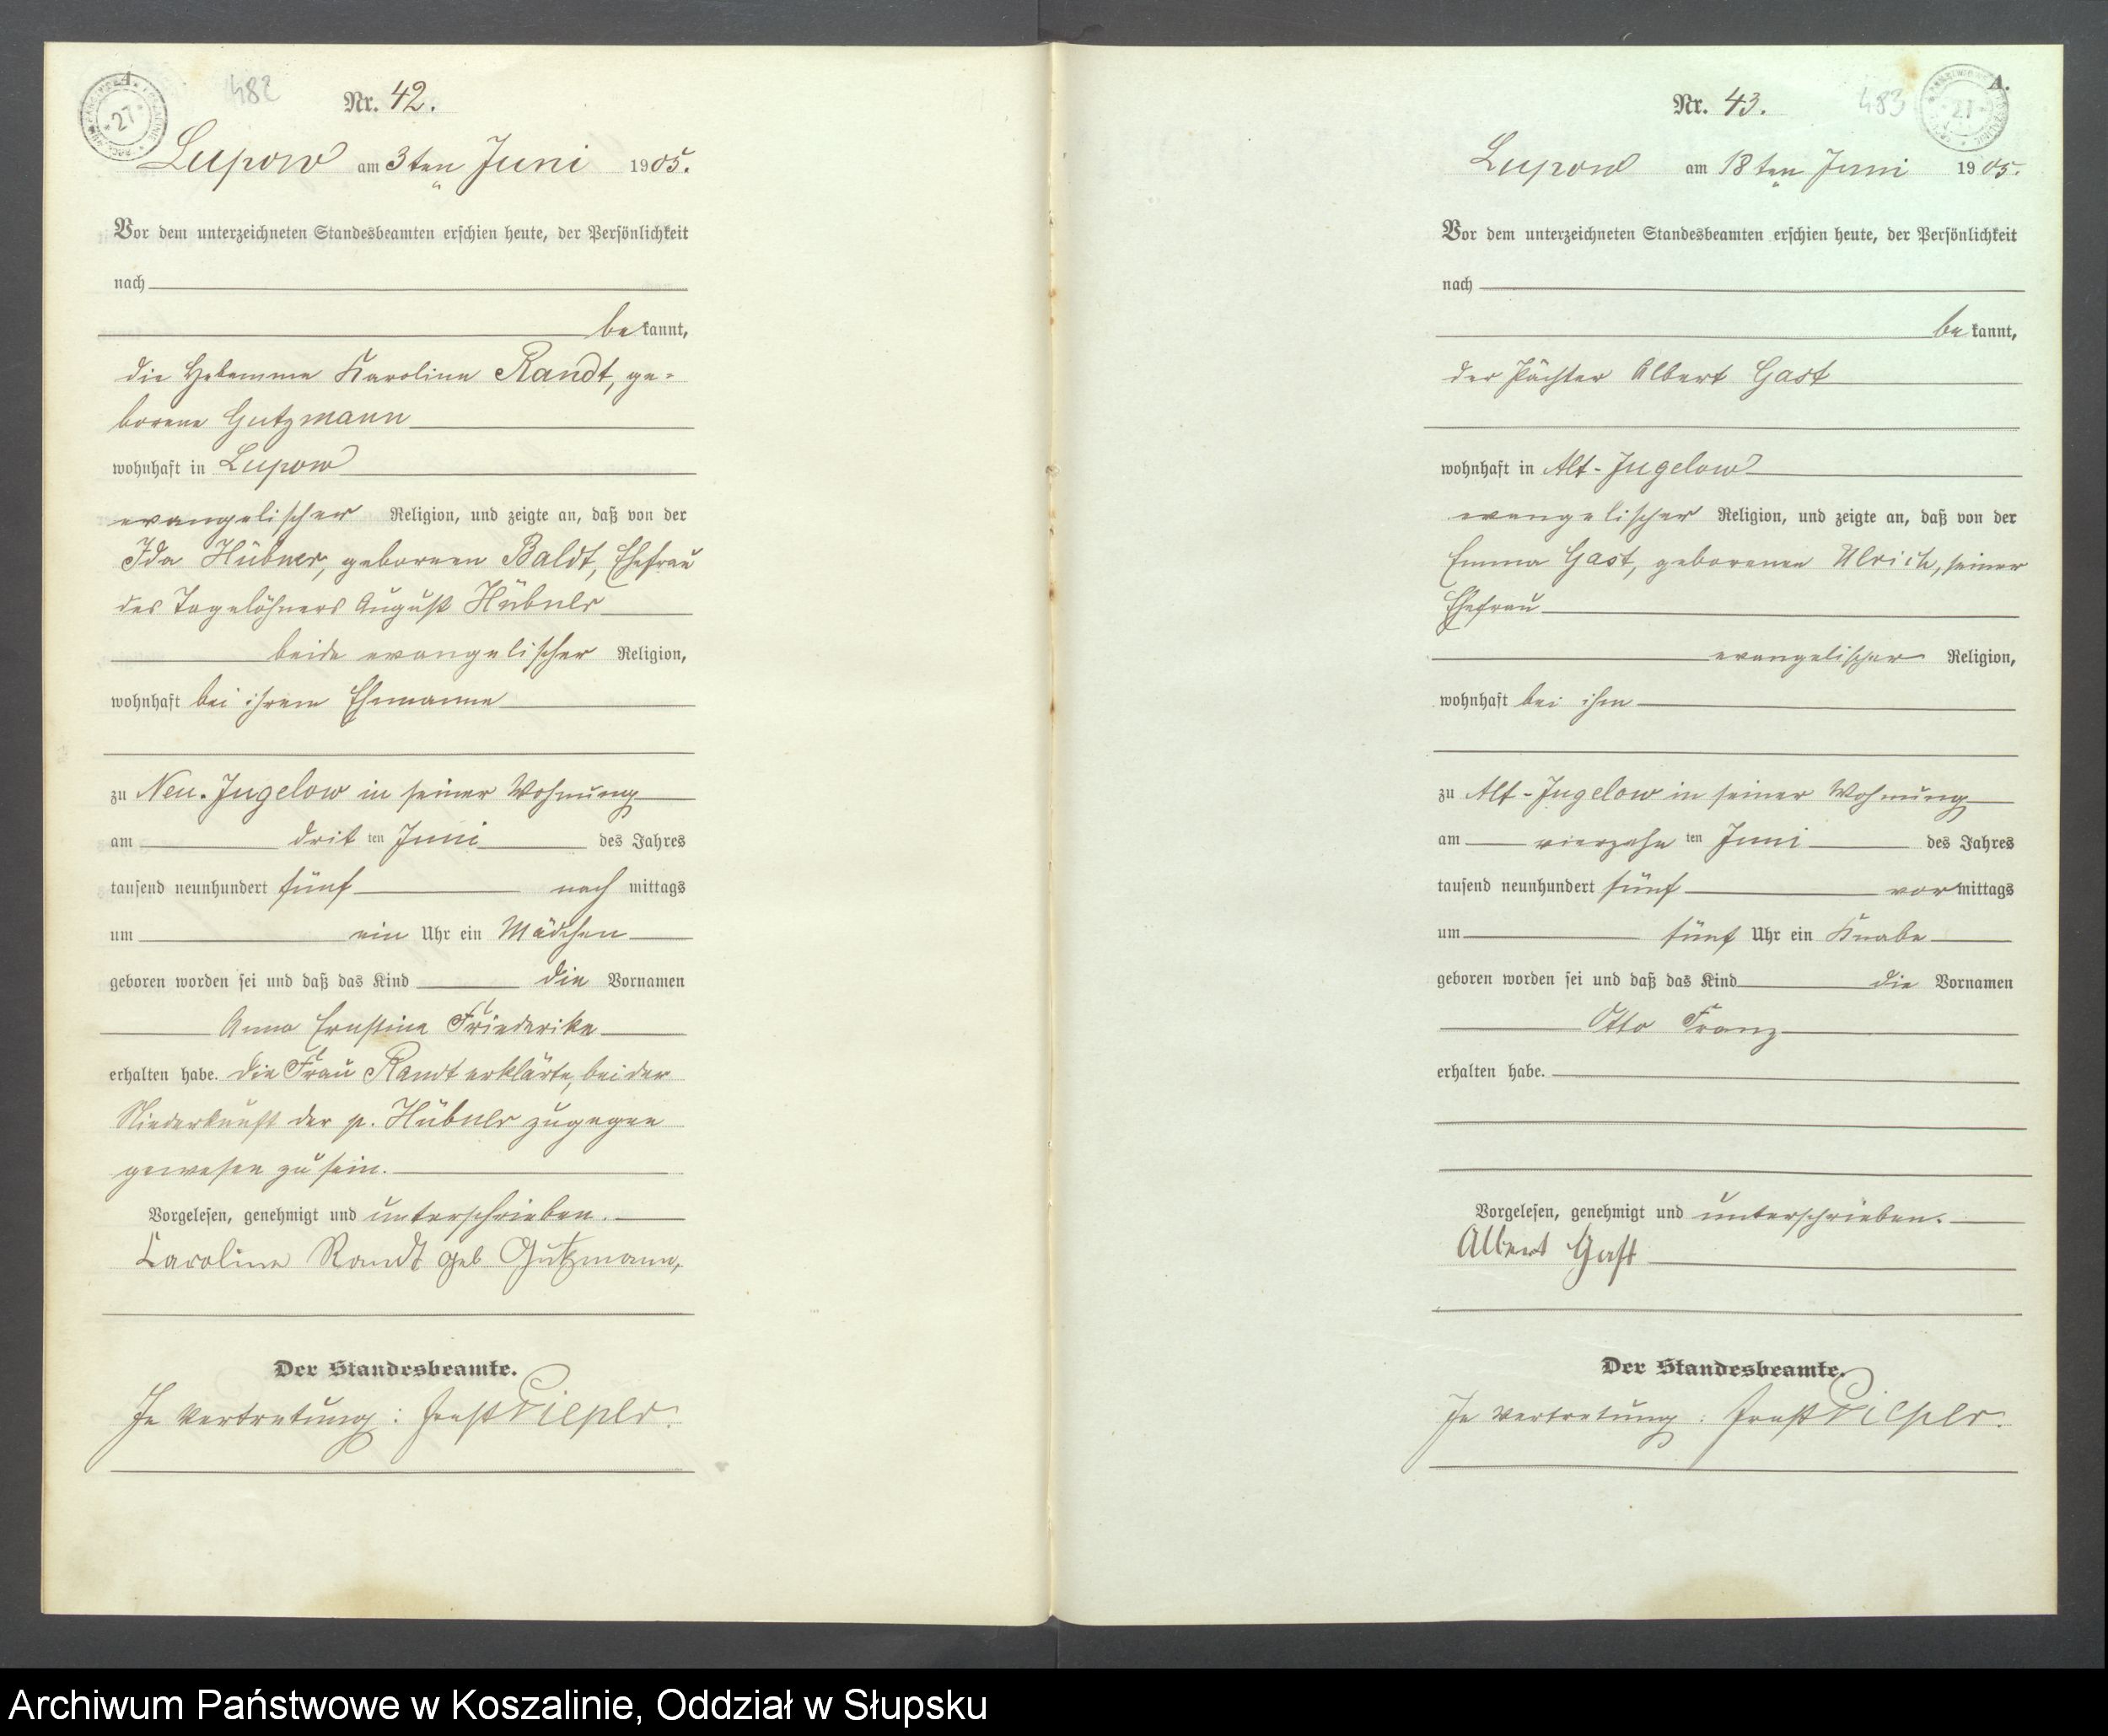 482
Nr. 42.
27
Lupow am 3ten Juni 1905.
Vor dem unterzeichneten Standesbeamten erschien heute, der Persönlichkeit
nach
bekannt,
die Hebamme Karoline Randt, ge-
borene Gutzmann
wohnhaft in Lupow
evangelischer Religion, und zeigte an, daß von der
Ida Hübner, geborenen Baldt, Ehefrau
des Tagelöhners August Hübner
beide evangelischer Religion,
wohnhaft bei ihrem Ehemanne
zu Neu-Jugelow in seiner Wohnung
am dritten Juni des Jahres
tausend neunhundert fünf nachmittags
um ein Uhr ein Mädchen
geboren worden sei und daß das Kind die Vornamen
Anna Ernstine Friederike
erhalten habe. Die Frau Randt erklärte, bei der
Niederkunft der p. Hübner zugegen
gewesen zu sein.
Vorgelesen, genehmigt und unterschrieben.
Caroline Randt geb Gutzmann,
Der Standesbeamte.
In Vertretung: Ernst Pieper.
A.
483
Nr. 43.
27
Lupow am 18ten Juni 1905.
Vor dem unterzeichneten Standesbeamten erschien heute, der Persönlichkeit
nach
bekannt,
der Pächter Albert Gast
wohnhaft in Alt-Jugelow
evangelischer Religion, und zeigte an, daß von der
Emma Gast, geborenen Ulrich, seiner
Ehefrau
evangelischer Religion,
wohnhaft bei ihm
zu Alt-Jugelow in seiner Wohnung
am vierzehnten Juni des Jahres
tausend neunhundert fünf vormittags
um fünf Uhr ein Knabe
geboren worden sei und daß das Kind die Vornamen
Otto Franz
erhalten habe.
Vorgelesen, genehmigt und unterschrieben.
Albert Gast
Der Standesbeamte.
In Vertretung: Ernst Pieper.
Archiwum Państwowe w Koszalinie, Oddział w Słupsku